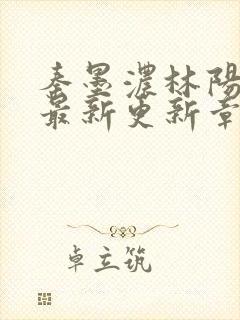 秦墨濃林陽
最新更新章
卓立筑